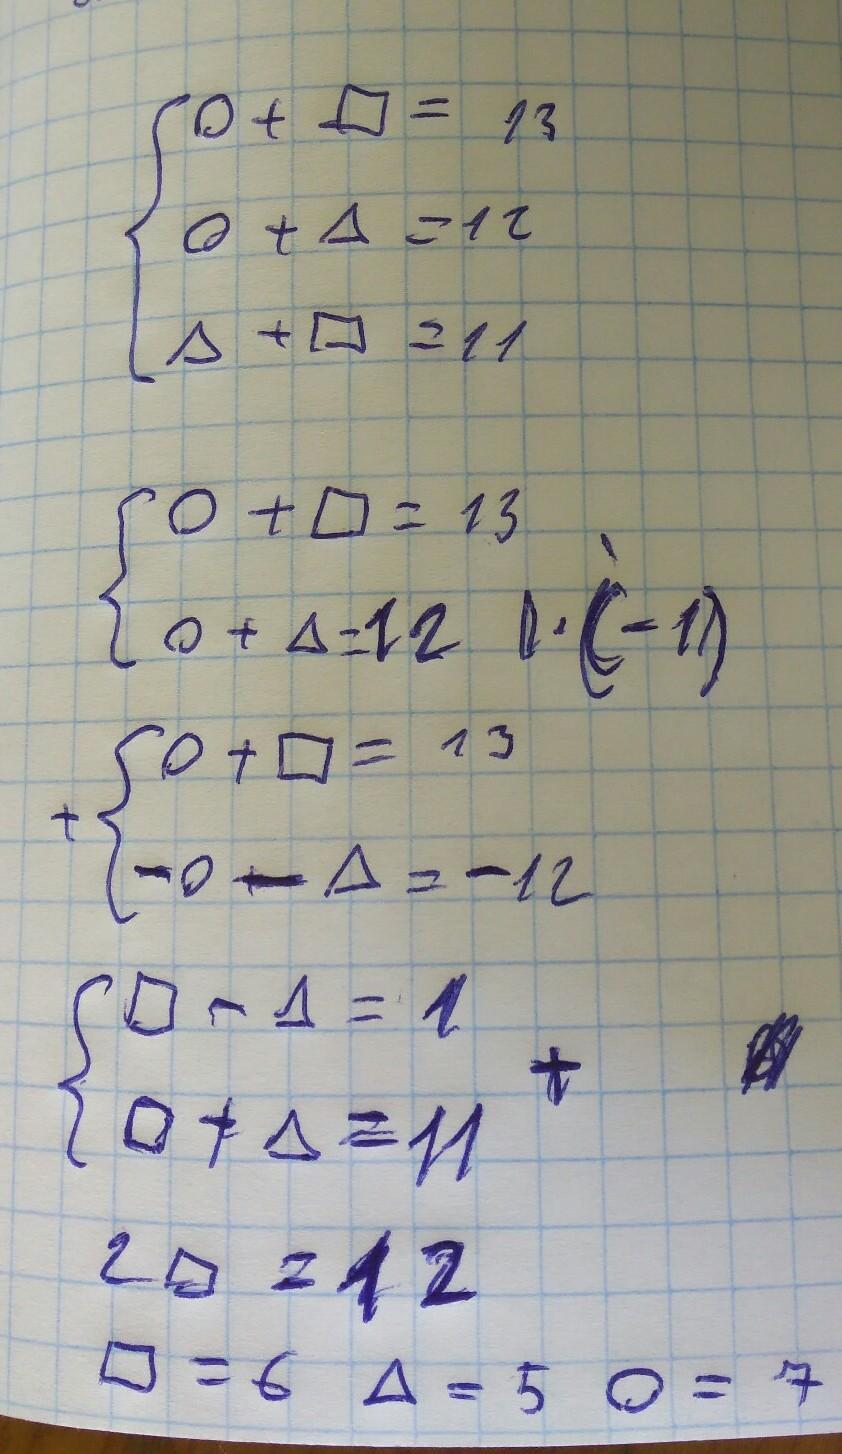 { ○ + □ = 13
○ + △ = 12
△ + □ = 11
{ ○ + □ = 13
○ + △ = 12 |·(-1)
+ { ○ + □ = 13
-○ - △ = -12
{ □ - △ = 1
+
□ + △ = 11
2□ = 12
□ = 6 △ = 5 ○ = 7